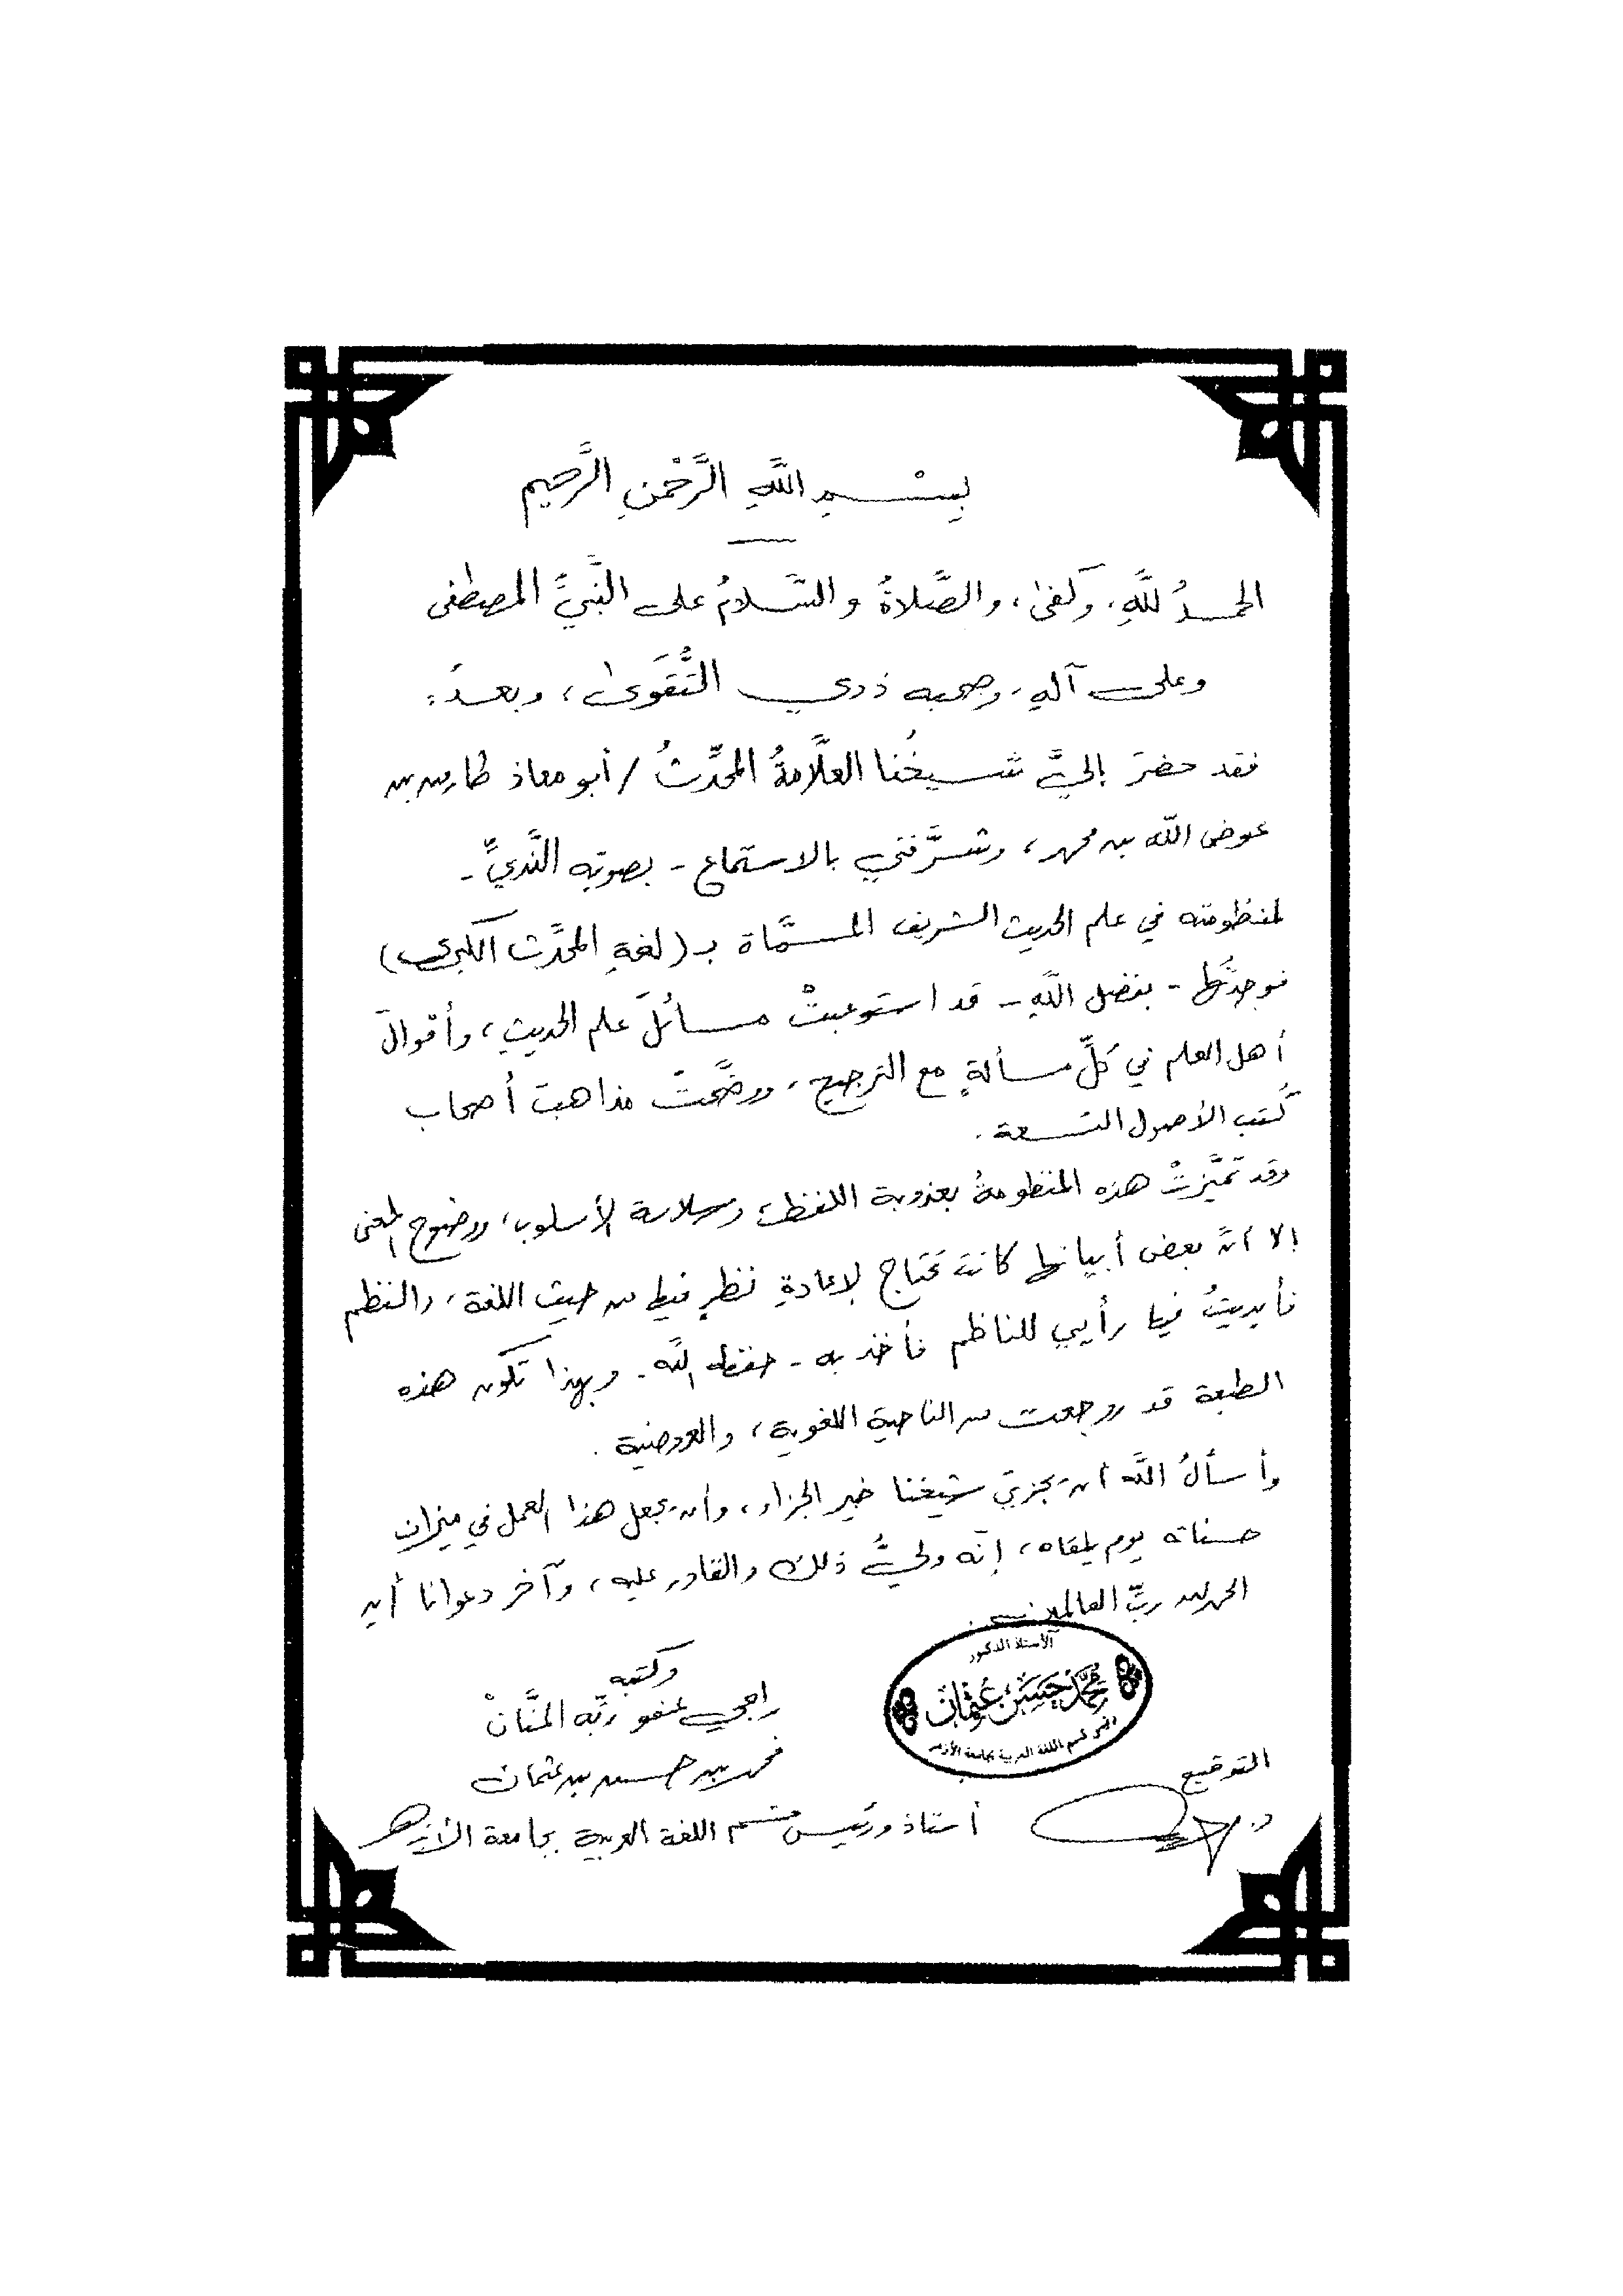 بِسْمِ اللَّهِ الرَّحْمنِ الرَّحيم
الحمدُ للَّهِ، وَكَفىٰ، والصَّلاةُ والسَّلامُ على النَّبيِّ المصطفى
وعلى آلهِ، وصحبه ذوي التَّقوَىٰ، وبعدُ:
فقد حضرَ إليَّ شيخُنا العلَّامةُ المحدِّثُ / أبو معاذ طارق بن
عوض الله بن محمد، وشرَّفني بالاستماع - بصوتِه النَّديِّ -
لمنظومته في علم الحديث الشريف المسمَّاة بـ (لغةِ المحدِّث الكبرى)
فوجدتُها - بفضل اللَّه - قد استوعبتْ مسائلَ علم الحديثِ، وأقوالَ
أهل العلم في كلِّ مسألةٍ مع الترجيح، ووضَّحتْ مذاهبَ أصحاب
كُتب الأصول التسعة.
وقد تميَّزتْ هذه المنظومةُ بعذوبة اللفظ، وسلاسة الأسلوب، ووضوح المعنى
إلا أنَّ بعض أبياتها كانت تحتاج لإعادةِ نظرٍ فيها من حيث اللغة، والنظم
فأبديتُ فيها رأيي للناظم فأخذ به - حفظه اللَّه - وبهذا تكون هذه
الطبعة قد روجعت من الناحية اللغوية، والعروضية.
وأسألُ اللَّه أن يجزيَ شيخنا خير الجزاء، وأن يجعل هذا العمل في ميزان
حسناته يوم يلقاه، إنَّه وليُّ ذلك والقادر عليه، وآخر دعوانا أن
الحمد لله ربِّ العالمين.
الأستاذ الدكتور
مُحَمَّد حَسَن عُثْمَان
رئيس قسم اللغة العربية بجامعة الأزهر
وكتبه
راجي عفو ربِّه المنَّانْ
محمد بن حسن بن عثمان
أستاذ ورئيس قسم اللغة العربية بجامعة الأزهر
التوقيع
د.